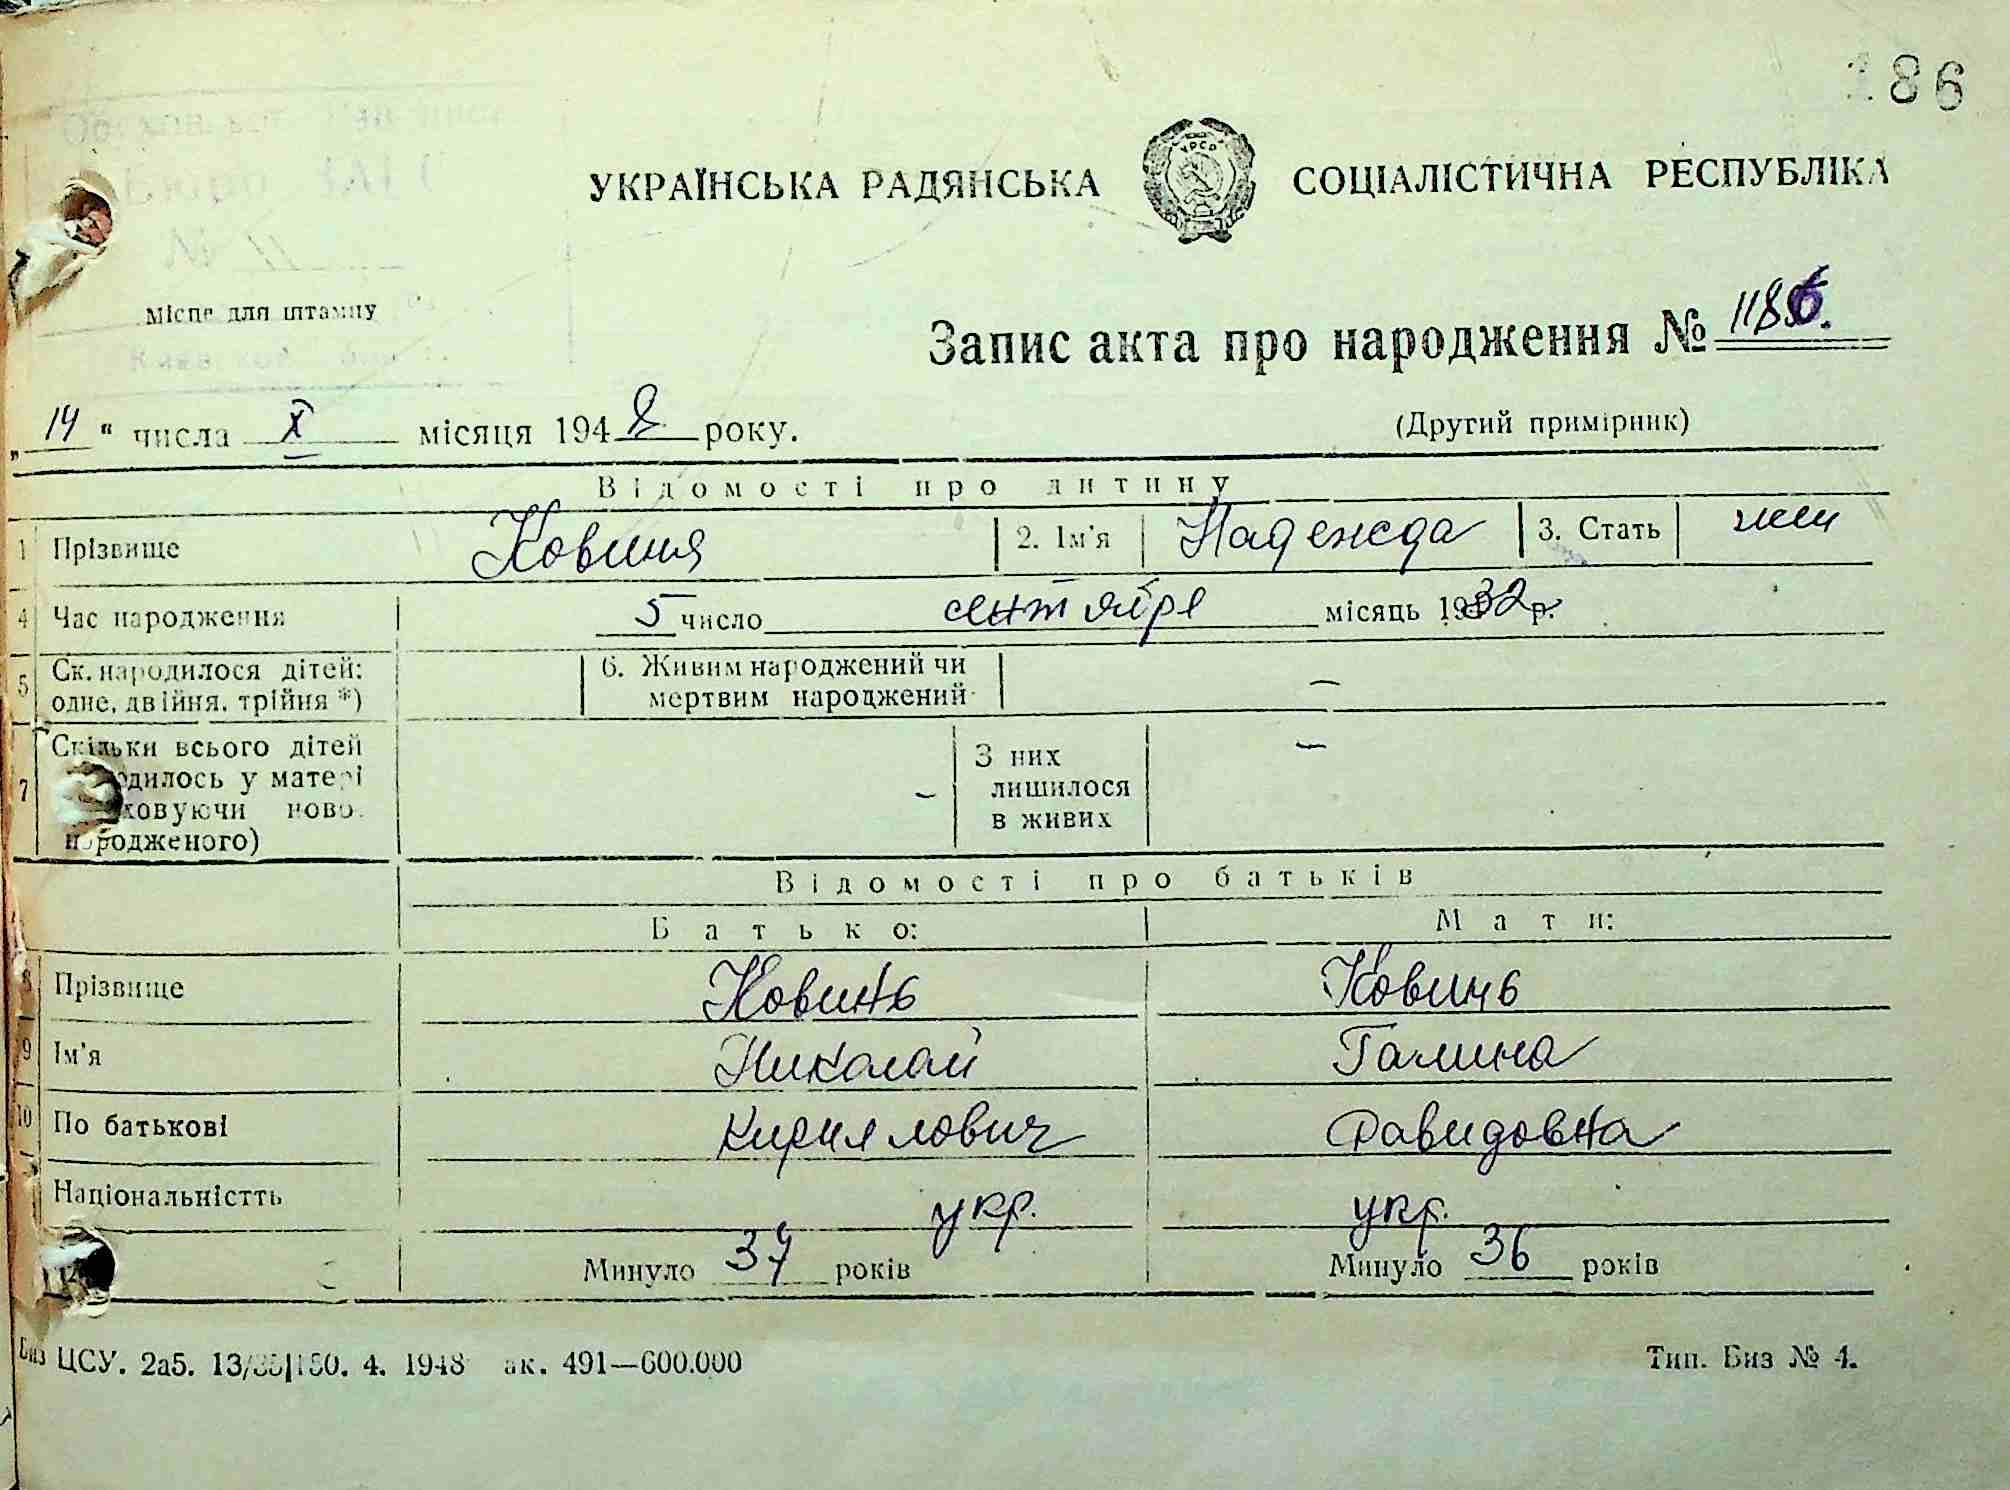 186
УКРАЇНСЬКА РАДЯНСЬКА СОЦІАЛІСТИЧНА РЕСПУБЛІКА
УРСР
№ 11
місце для штампу
Запис акта про народження № 1186.
„14“ числа X місяця 1948 року.
(Другий примірник)
Відомості про дитину
1 Прізвище Ковиня 2. Ім'я Надежда 3. Стать жен
4 Час народження 5 число сентября місяць 1932 р.
5 Ск. народилося дітей: одне, двійня, трійня *) 6. Живим народжений чи мертвим народжений —
7 Скільки всього дітей народилось у матері (враховуючи ново народженого) — З них лишилося в живих —
Відомості про батьків
Батько: Мати:
8 Прізвище Ковинь Ковинь
9 Ім'я Николай Галина
10 По батькові Кириллович Давидовна
Національністть укр. укр.
Минуло 37 років Минуло 36 років
ЦСУ. 2а5. 13/35|150. 4. 1948 ак. 491—600.000
Тип. Биз № 4.